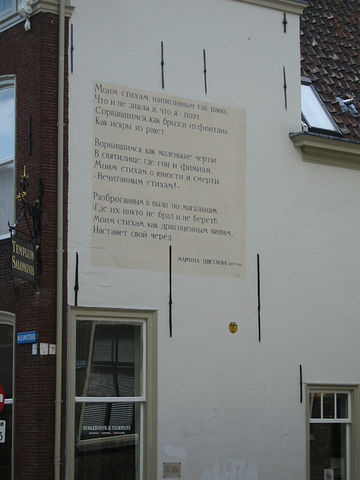 Моим стихам, написанным так рано,
Что и не знала я, что я - поэт,
Сорвавшимся, как брызги из фонтана,
Как искры из ракет,
Ворвавшимся, как маленькие черти,
В святилище, где сон и фимиам,
Моим стихам о юности и смерти,
- Нечитанным стихам! -
Разбросанным в пыли по магазинам
(Где их никто не брал и не берет!),
Моим стихам, как драгоценным винам,
Настанет свой черед.
МАРИНА ЦВЕТАЕВА
TEMPLUM
SALOMONIS
NIEUWSTEEG
BURGERSDIJK & NIERMANS